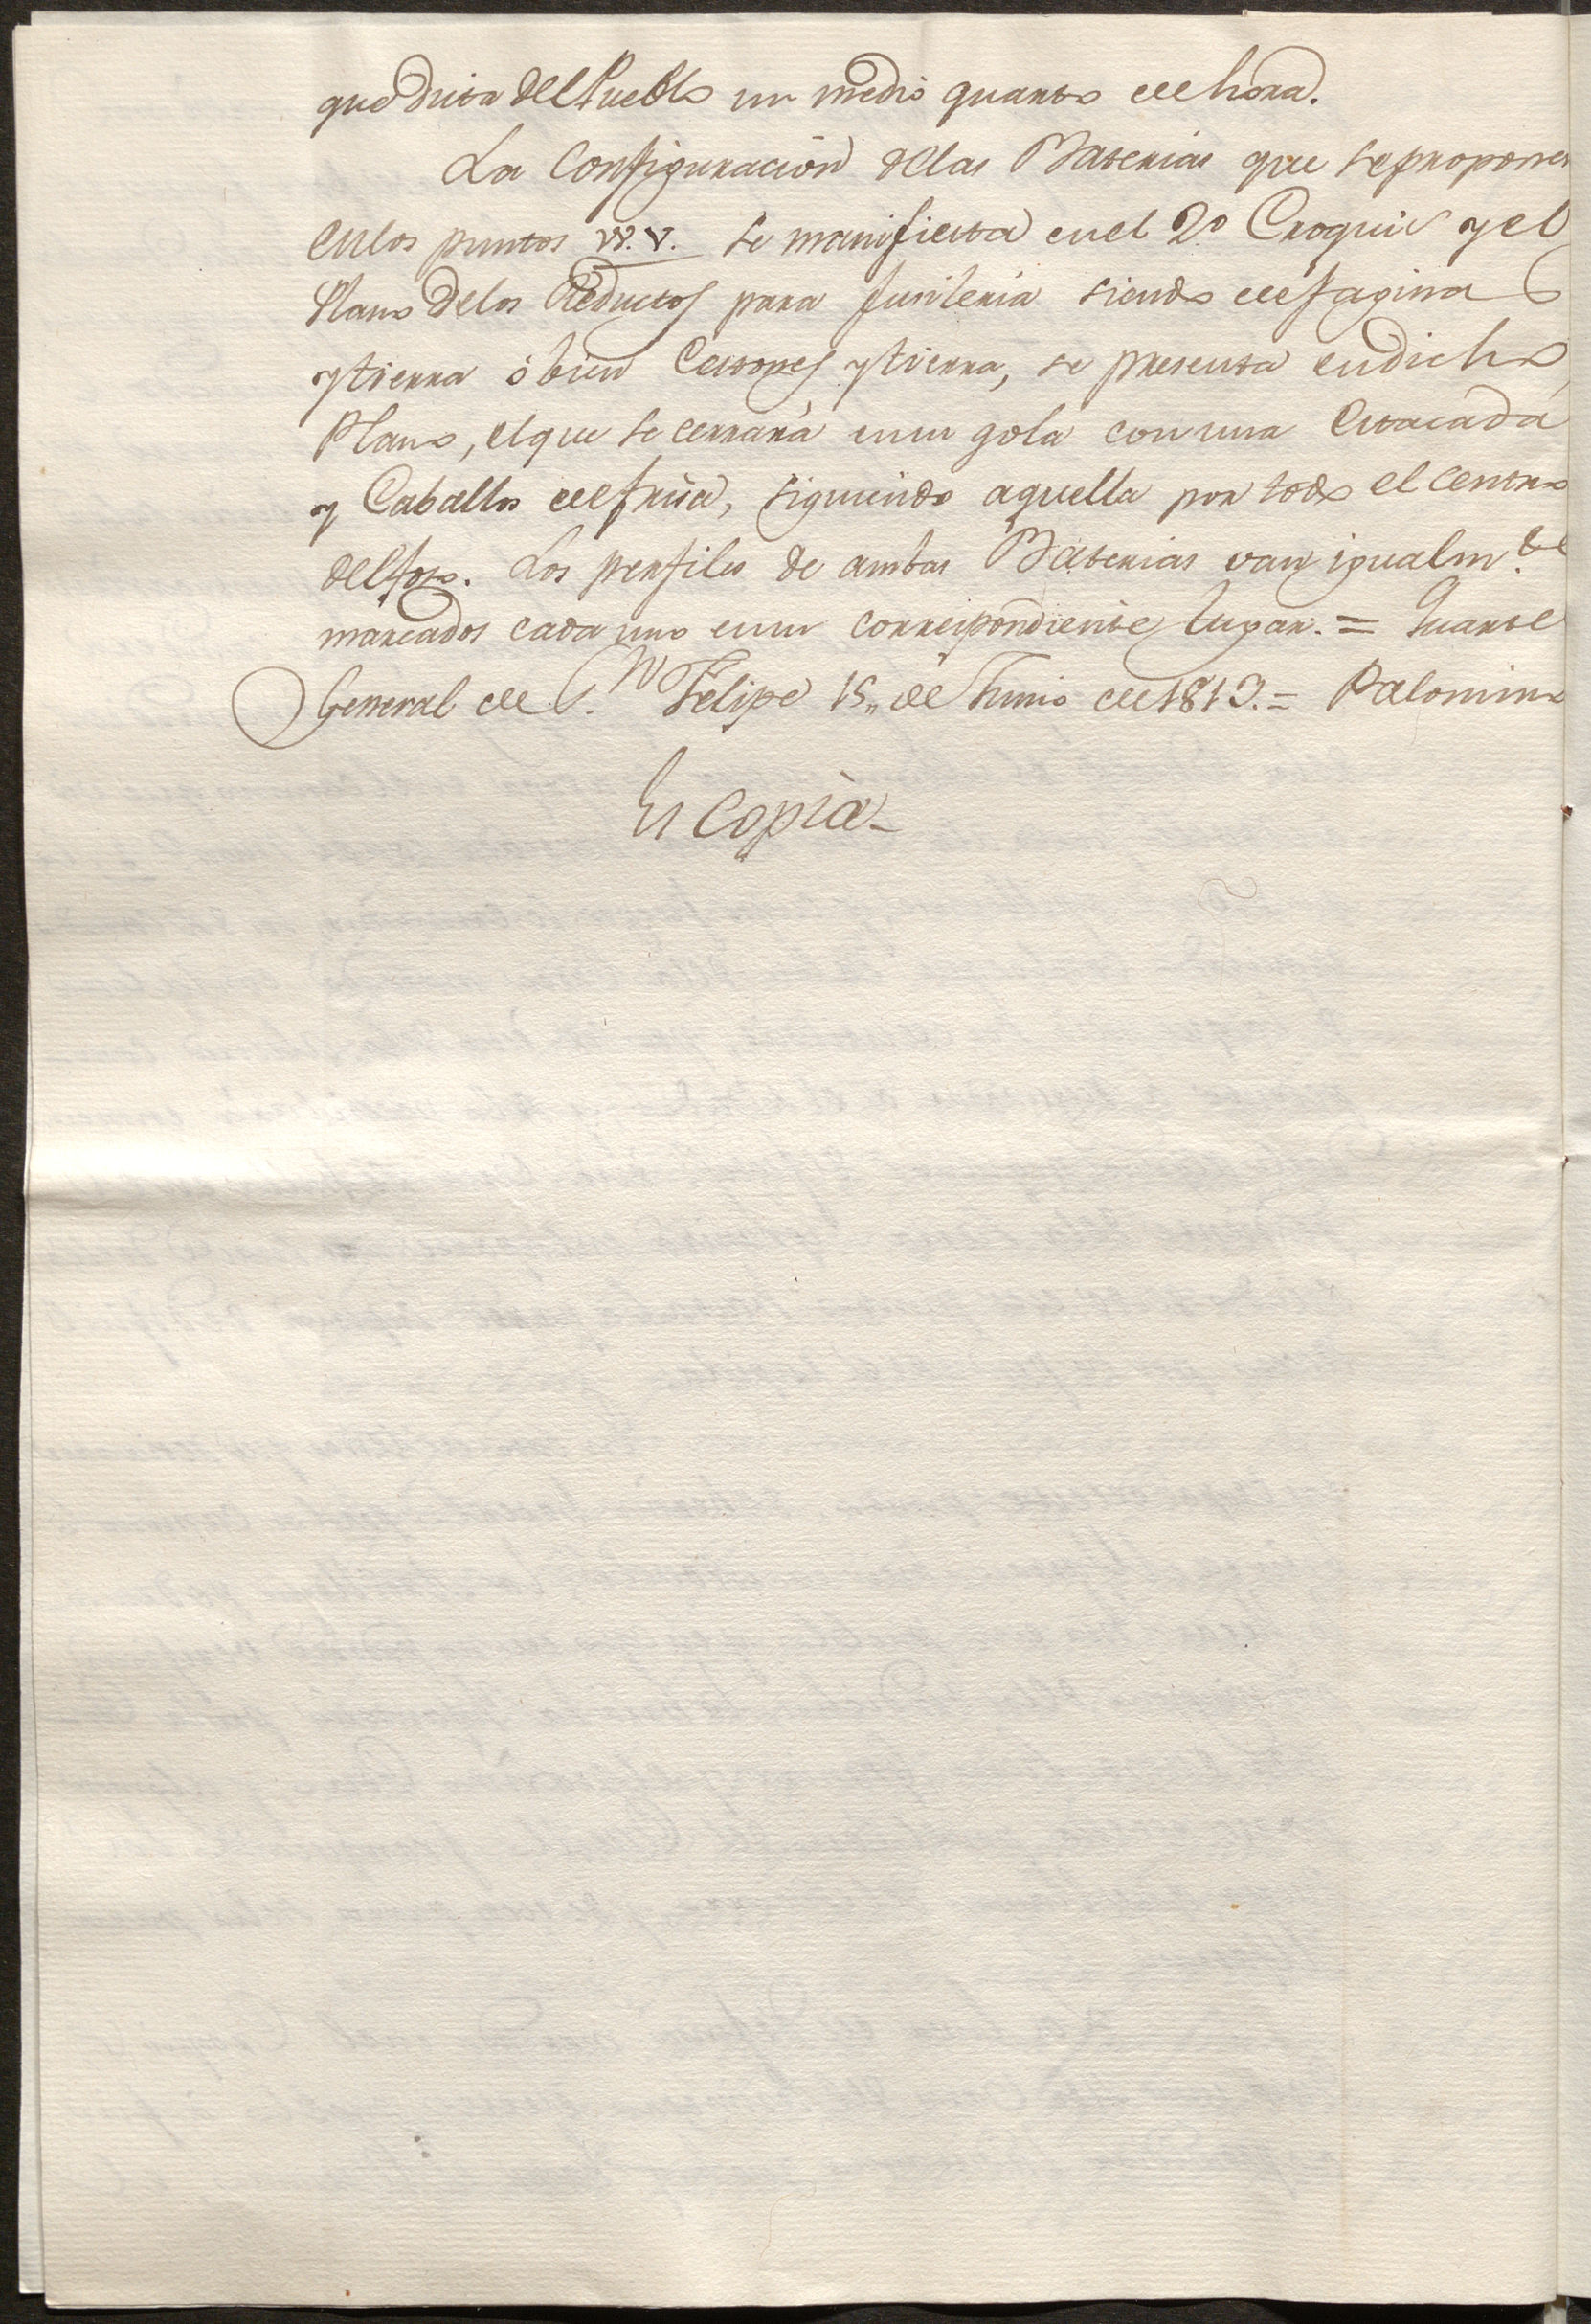 que dista del Pueblo un medio quarto de hora.
La Configuracion de las Baterias que se proponen
en los puntos W. V. se manifiesta en el 2º Croquis y el
Plano de los Reductos para fusileria siendo de fagina
y tierra ó bien Cestones y tierra, se presenta en dicho
Plano, el que se cerrará en su gola con una Estacada
y Caballos de frisa, siguiendo aquella por todo el centro
del foso. Los perfiles de ambas Baterias van igualm.te
marcados cada uno en su correspondiente lugar. = Quartel
General de S.n Felipe 15,, de Junio de 1813. = Palomino
Es copia